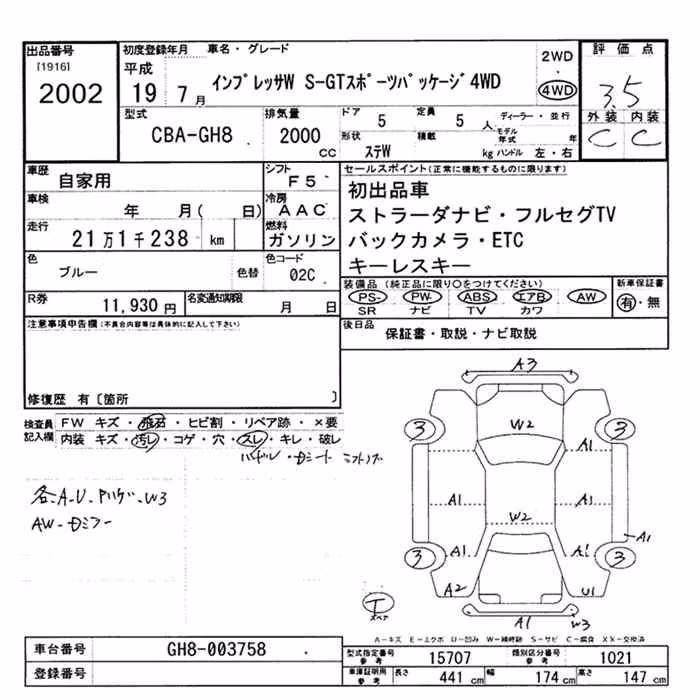 出品番号
[1916]
2002
初度登録年月 車名・グレード
平成
19 7月
インプレッサW S-GTスポーツパッケージ4WD
2WD
4WD
評価点
3.5
外装 内装
C C
型式
CBA-GH8
排気量
2000 CC
ドア 5
定員 5 人
ディーラー・並行
形状 ステW
積載 kg
モデル年式 年
ハンドル 左・右
車歴 自家用
シフト F5
車検 年 月( 日)
冷房 AAC
走行 21万1千238 km
燃料 ガソリン
色 ブルー 色替
色コード 02C
R券 11,930円
名変通知期限 月 日
セールスポイント(正常に機能するものに限ります)
初出品車
ストラーダナビ・フルセグTV
バックカメラ・ETC
キーレスキー
装備品(純正品に限り○をつけてください)
PS PW ABS エアB AW
SR ナビ TV カワ
新車保証書
有・無
後日品 保証書・取説・ナビ取説
注意事項申告欄(不具合内容等は具体的に記入して下さい)
修復歴 有〔箇所 〕
検査員記入欄
FW キズ・飛石・ヒビ割・リペア跡・×要
内装 キズ・汚レ・コゲ・穴・スレ・キレ・破レ
各A.U
W3
AW
A3
3 3
W2
A1
A1 A1
W2
A1 A1
A1
3 3
A2 U1
T
スペア
A1 W3
A-キズ E-エクボ U-凹み W-補修跡 S-サビ C-腐食 XX-交換済
車台番号 GH8-003758
登録番号
型式指定番号参考 15707
類別区分番号参考 1021
車庫証明用参考 長さ 441cm 幅 174cm 高さ 147cm